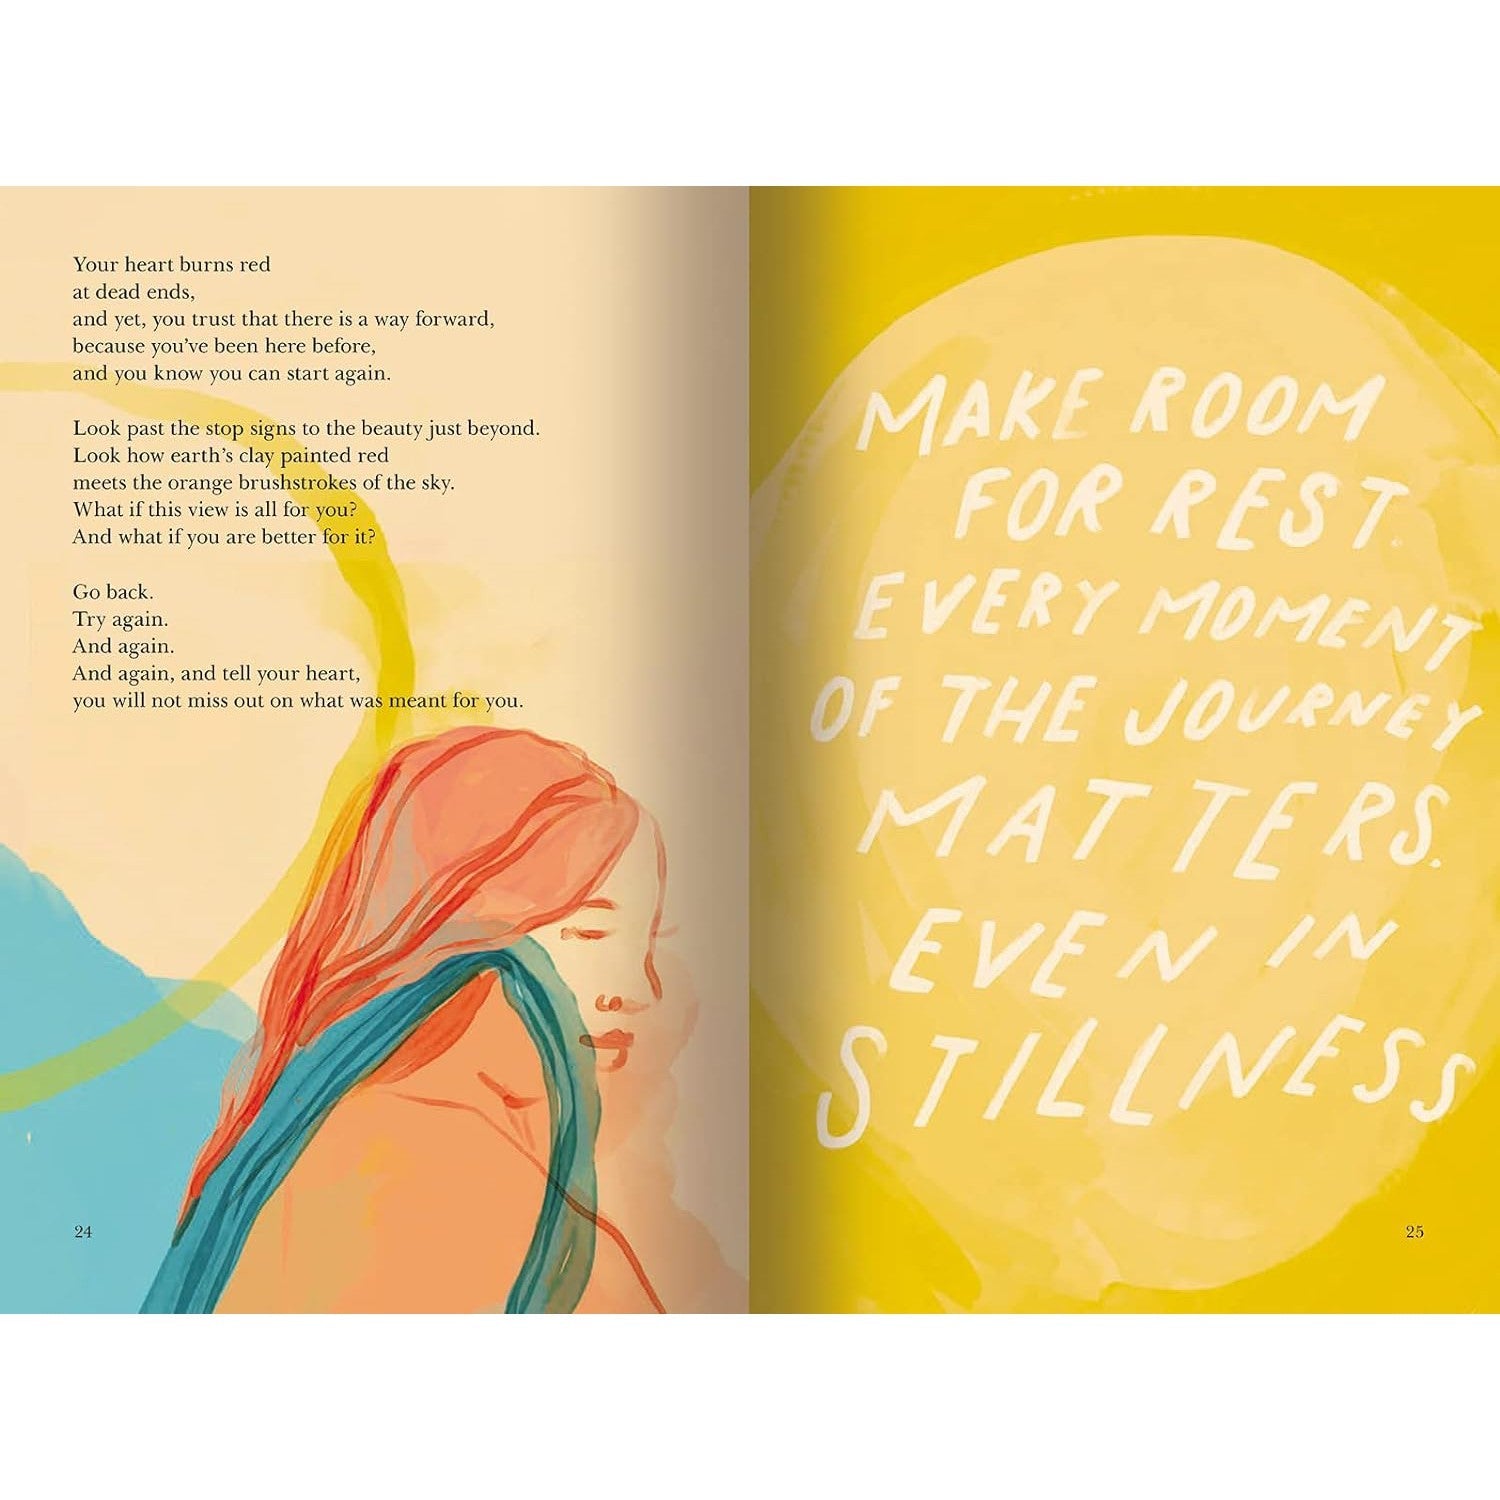 Your heart burns red
at dead ends,
and yet, you trust that there is a way forward,
because you've been here before,
and you know you can start again.
Look past the stop signs to the beauty just beyond.
Look how earth's clay painted red
meets the orange brushstrokes of the sky.
What if this view is all for you?
And what if you are better for it?
Go back.
Try again.
And again.
And again, and tell your heart,
you will not miss out on what was meant for you.
24
MAKE ROOM
FOR REST.
EVERY MOMENT
OF THE JOURNEY
MATTERS.
EVEN IN
STILLNESS
25